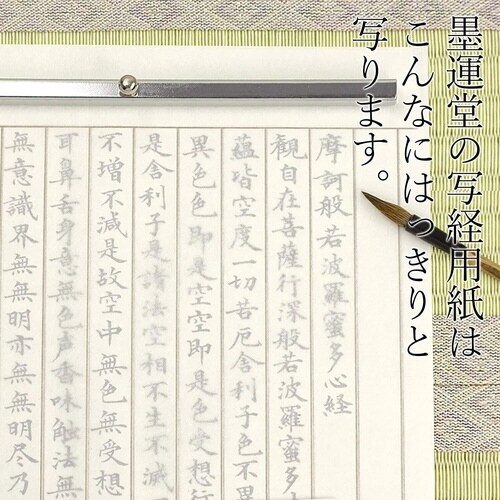 墨運堂の写経用紙は
こんなにはっきりと
写ります。
摩訶般若波羅蜜多心経
観自在菩薩行深般若波羅蜜多
蘊皆空度一切苦厄舎利子色不異
異色色即是空空即是色受想行
是舎利子是諸法空相不生不滅
不増不減是故空中無色無受想
耳鼻舌身意無色声香味触法無
無意識界無無明亦無無明尽乃